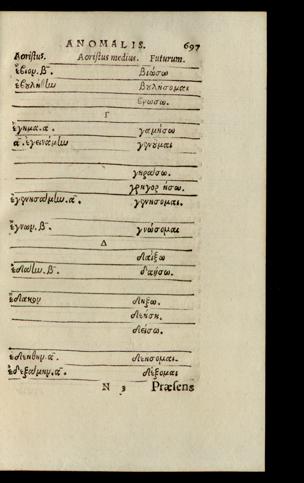 ANOMALIS. 697
Aoristus. Aoristus medius. Futurum.
ἐβίουν. β̄. βιώσω
ἐβουλήθην βουλήσομαι
βρώσω.
Γ
ἔγημα. α. γαμήσω
ᾱ. ἐγεινάμην γενοῦμαι
γηράσω.
γρηγορήσω.
ἐγενησάμην. ᾱ. γενήσομαι.
ἔγνων. β̄. γνώσομαι
Δ
δαίξω
ἐδάην. β̄. δαήσω.
ἔδακον δήξω.
δεήσῃ.
δείσω.
ἐδεήθην. ᾱ. δεήσομαι.
ἐδεξάμην. ᾱ. δέξομαι
N 3 Præsens